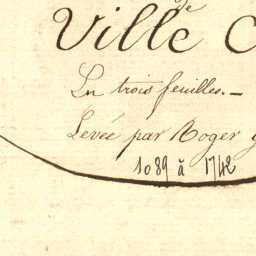 de
Ville
En trois feuilles.—
Levée par Roger
1089 à 1742